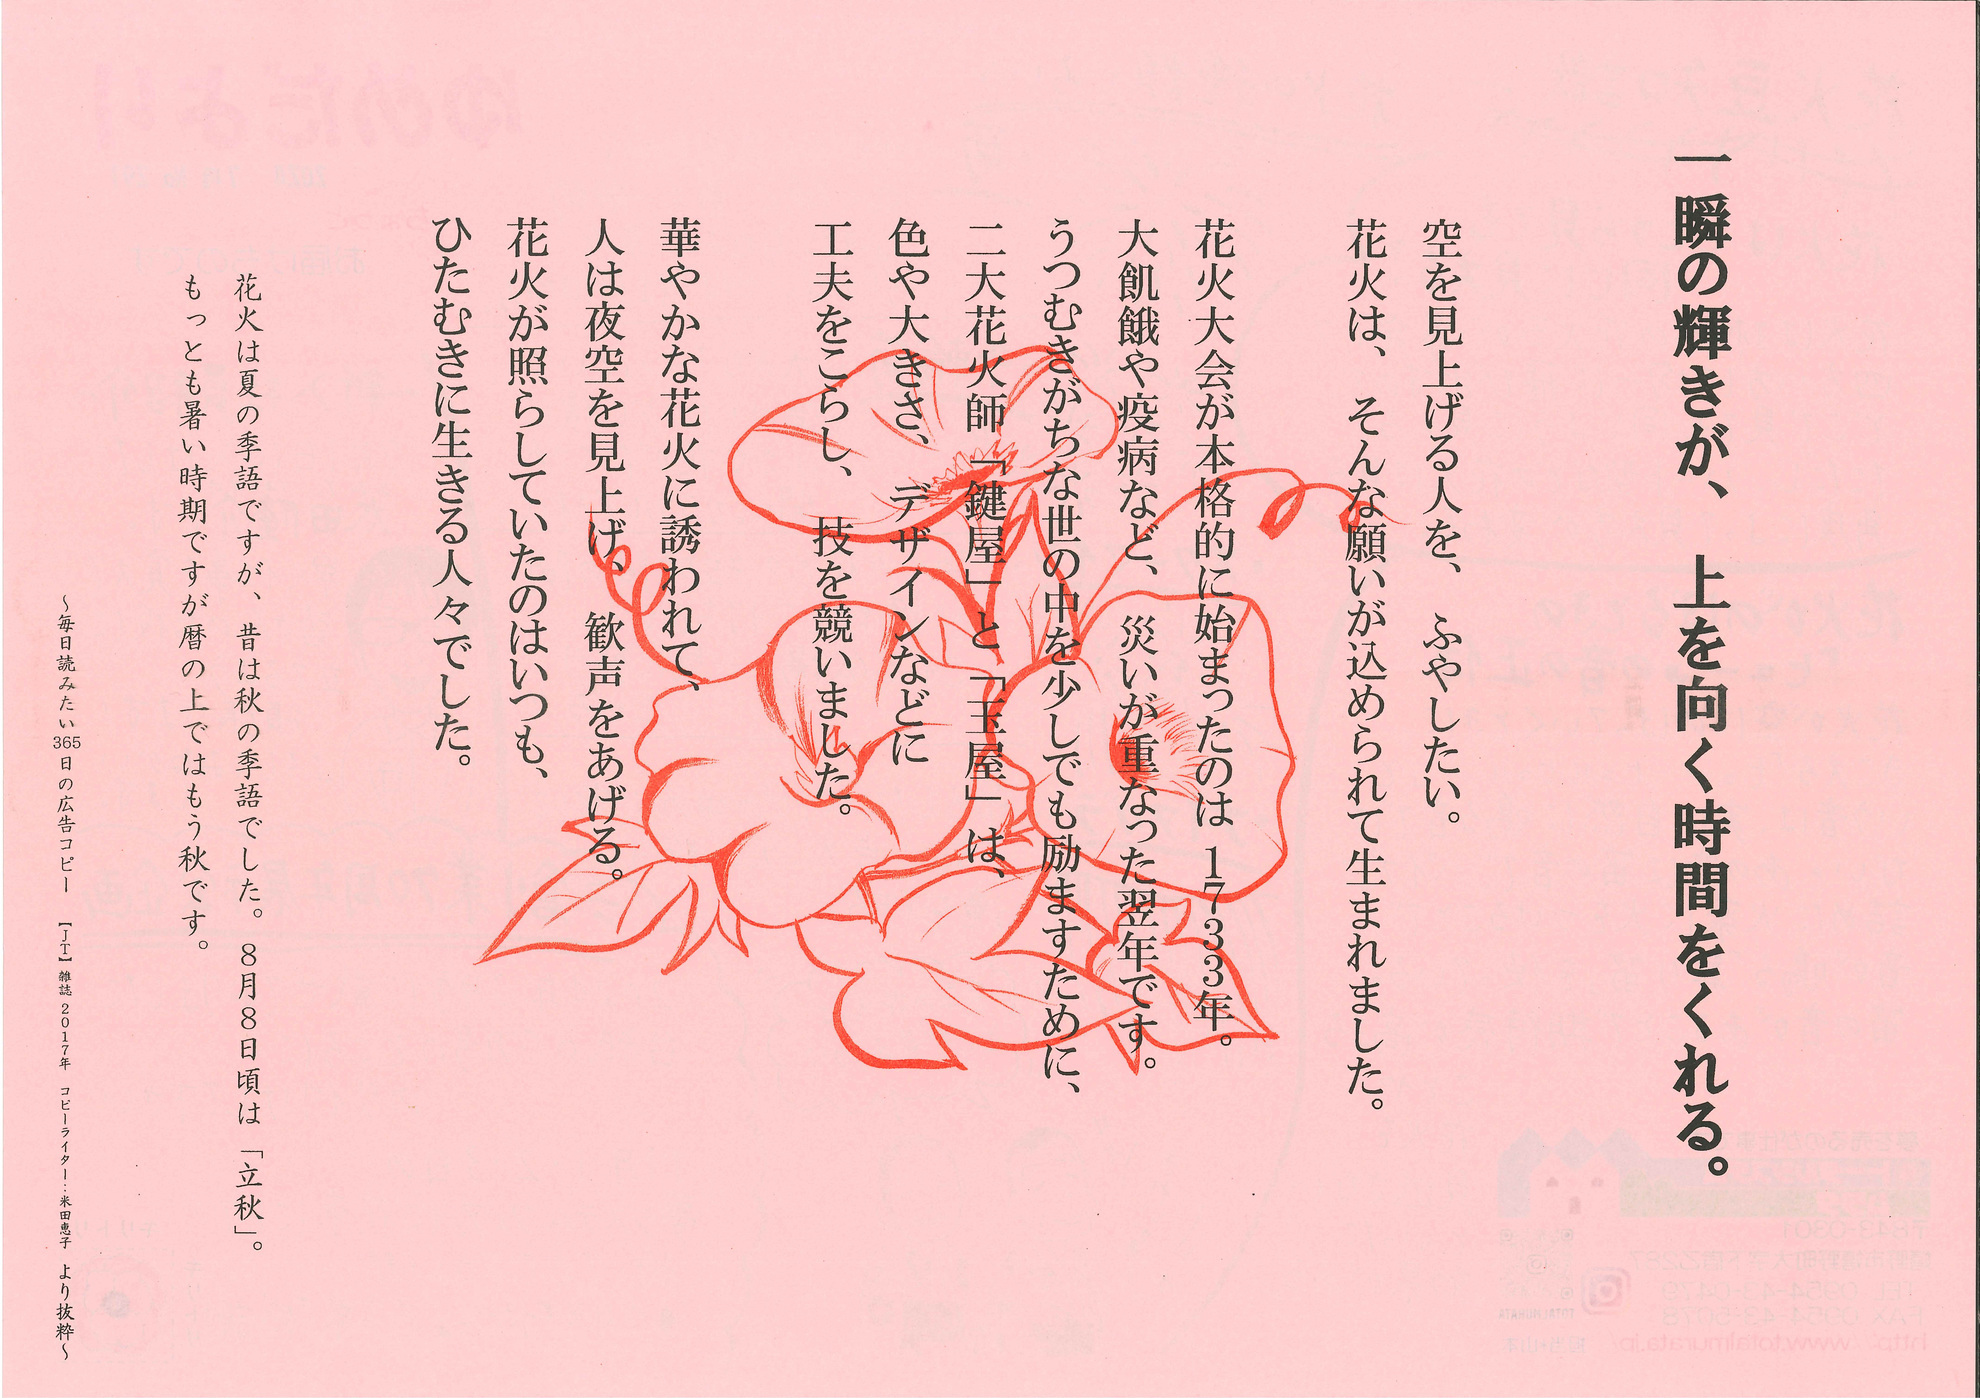 一瞬の輝きが、上を向く時間をくれる。
空を見上げる人を、ふやしたい。
花火は、そんな願いが込められて生まれました。
花火大会が本格的に始まったのは1733年。
大飢餓や疫病など、災いが重なった翌年です。
うつむきがちな世の中を少しでも励ますために、
二大花火師「鍵屋」と「玉屋」は、
色や大きさ、デザインなどに
工夫をこらし、技を競いました。
華やかな花火に誘われて、
人は夜空を見上げ、歓声をあげる。
花火が照らしていたのはいつも、
ひたむきに生きる人々でした。
花火は夏の季語ですが、昔は秋の季語でした。8月8日頃は「立秋」。
もっとも暑い時期ですが暦の上ではもう秋です。
～毎日読みたい365日の広告コピー 【JT】雑誌 2017年 コピーライター：米田恵子 より抜粋～